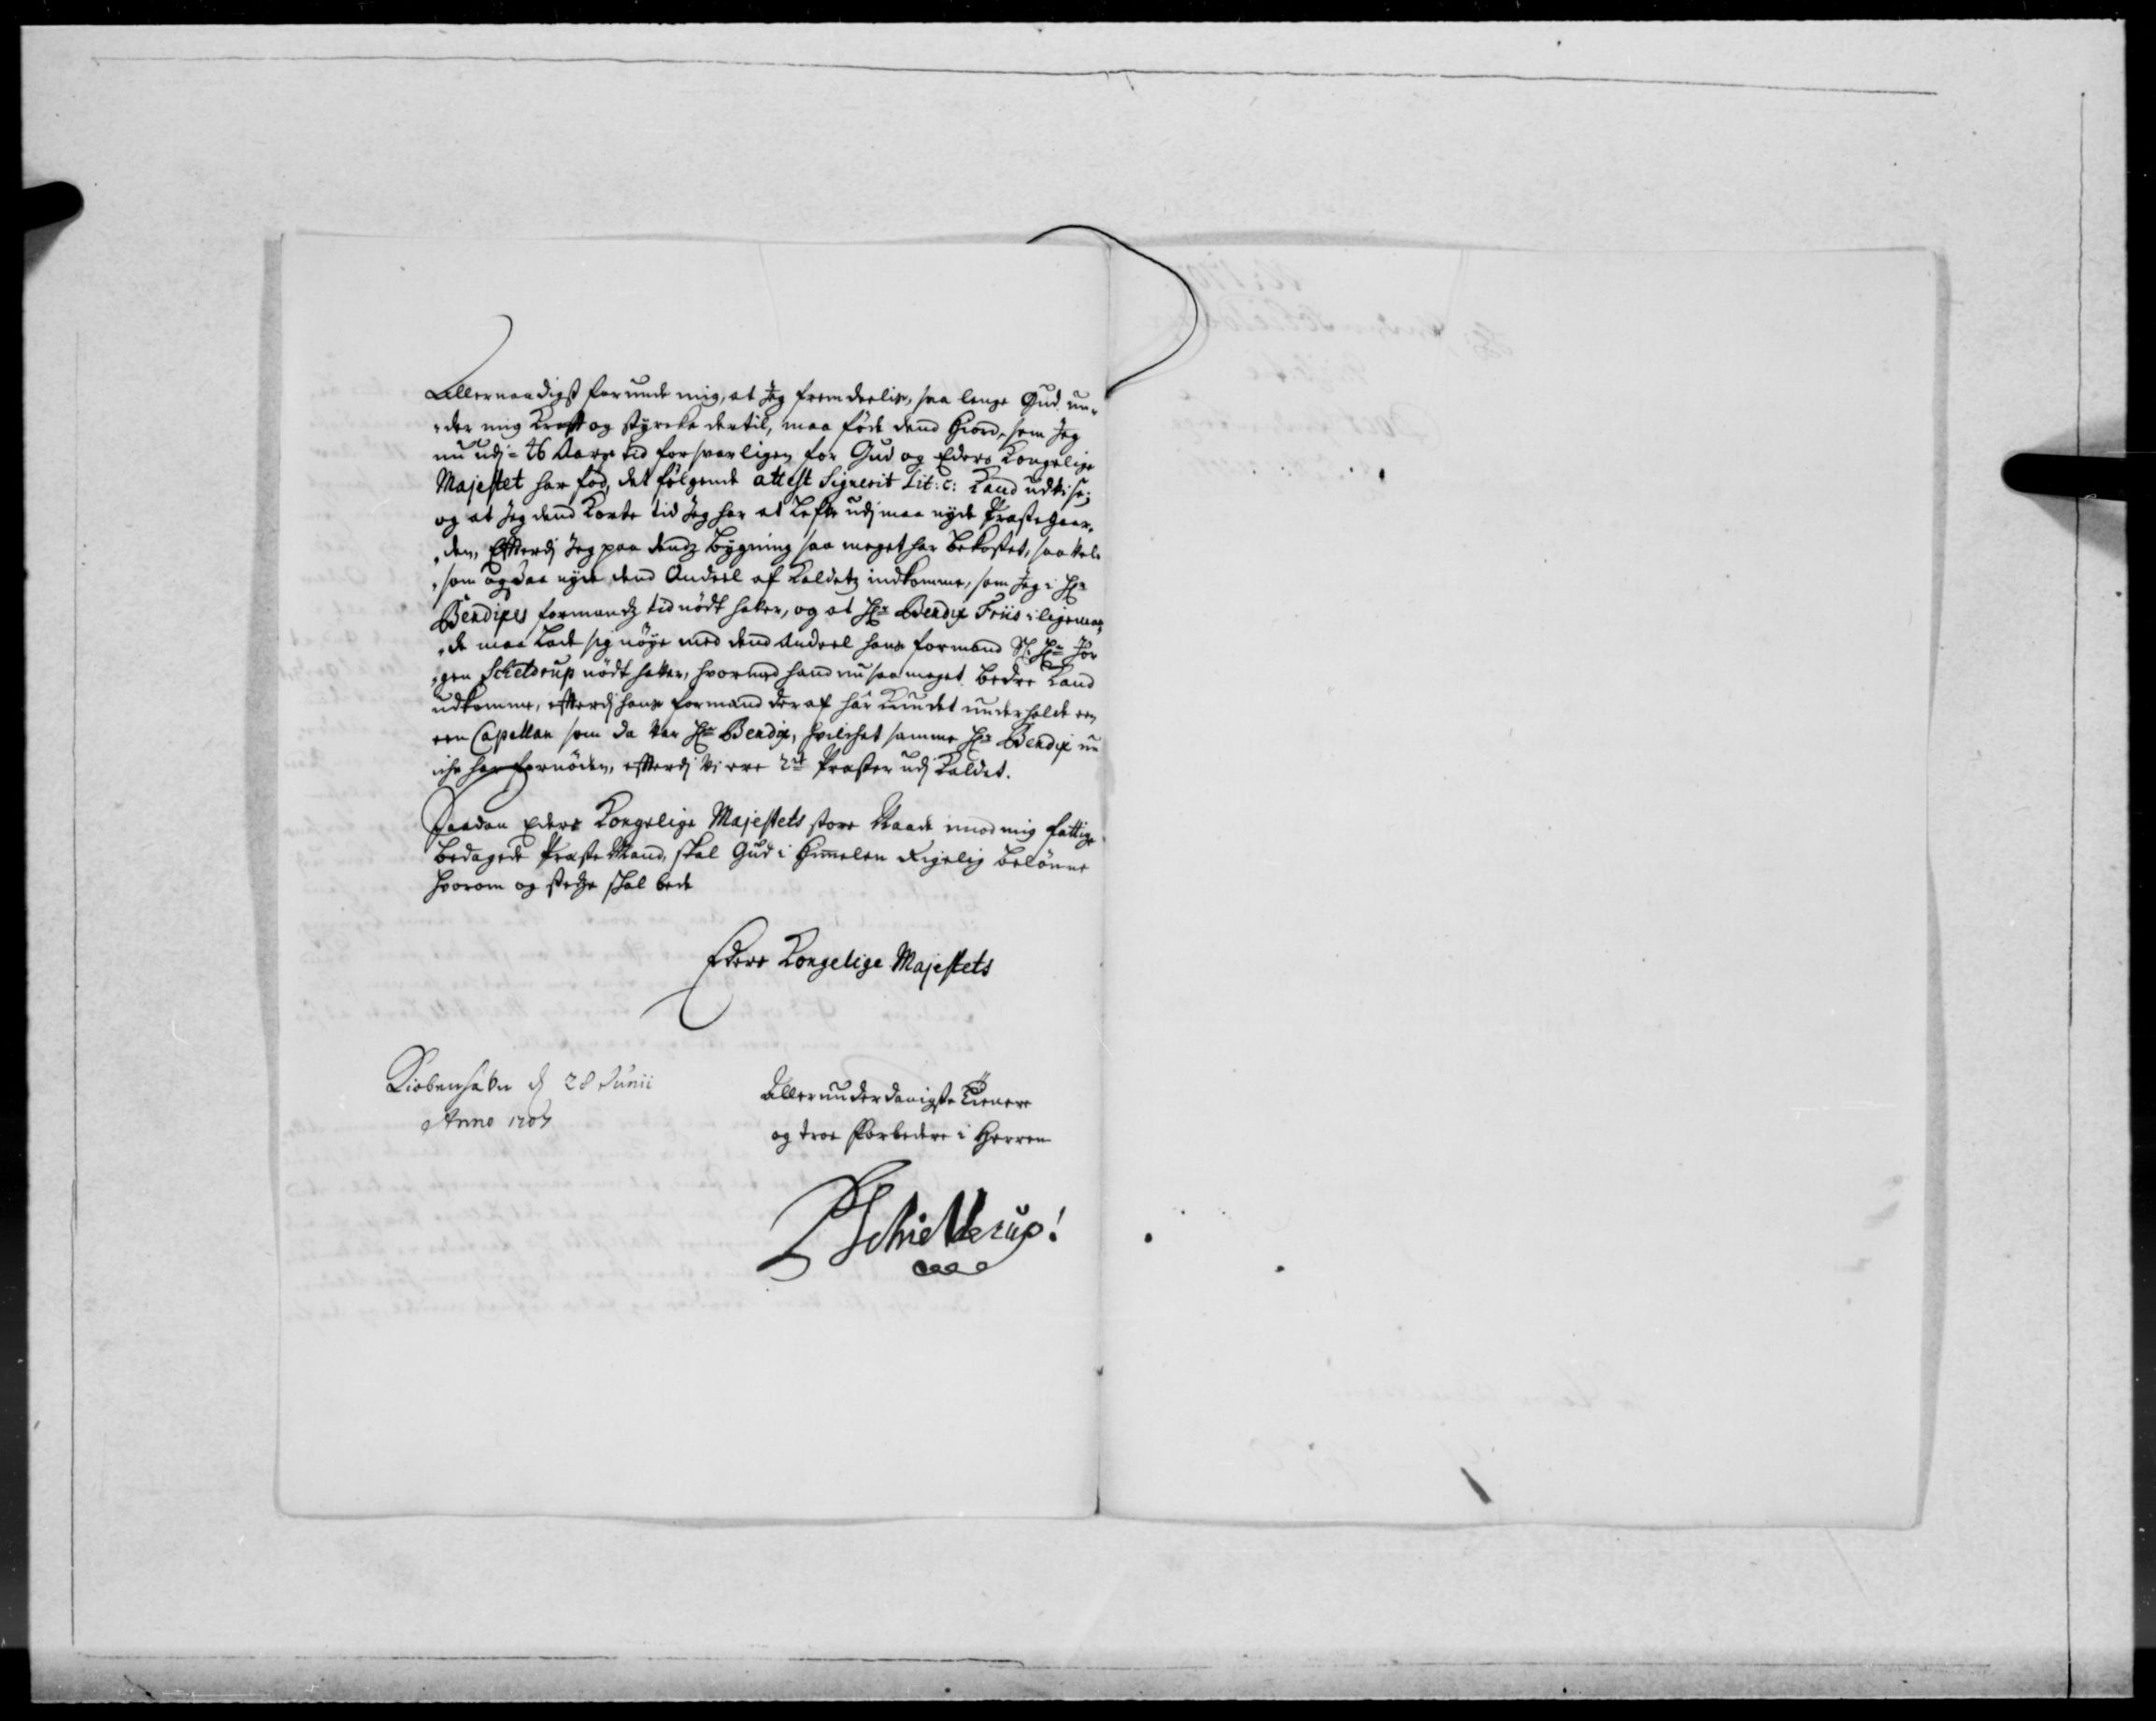 Allernaadigst forunde mig, at Jeg fremdeelis, saa lenge Gud un-
„der mig Krafft og styrcke dertil, maa føde dend Hiord, som Jeg
nu udj 46 Aars tid forsvarligen for Gud og Eders Kongelige
Majestet har fød, det følgende attest Signerit Lit: C: Kand udvise;
og at Jeg dend Korte tid Jeg har at Lefve udj maa nyde Præstegaar-
„den, Efterdj Jeg paa dendz bygning saa meget har bekostet, saavel-
„som og maa nyde dend Andeel af Kaldetz indkomme, som Jeg i Hr
Bendixes formandz tid nødt haver, og at Hr Bendix Friis i ligemaa-
„de maa Lade sig nøye med dend Andeel hans formand Sl: Hr Jør
„gen Scheldrup nødt haver, hvormed hand nu saa meget bedre Kand
udkomme, efterdj hans formand deraf har Kundet underholde en
een Capellan som da var Hr Bendix, hvilchet samme Hr Bendix nu
iche har fornøden, efterdj vi ere 2de Præster udj Kaldet.
Saadan Eders Kongelige Majestets store Naade imod mig fattige
bedagede Præste Mand, skal Gud i Himmelen Rigelig belønne
hvorom og stedze skal bede
Eders Kongelige Majestets
Kiøbenhafn d 28 Junii
Anno 1707
Allerunderdanigste Tienere
og troe Forbedere i Herren
PSchielderup!